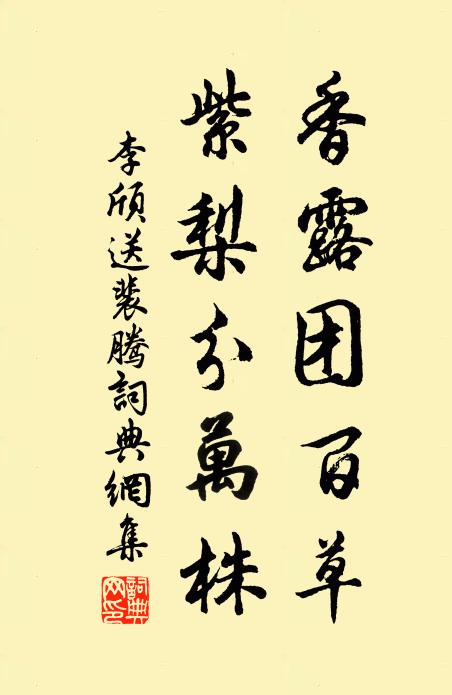 香露团百草
紫梨分萬株
李颀送裴腾詞典網集
詞典网印